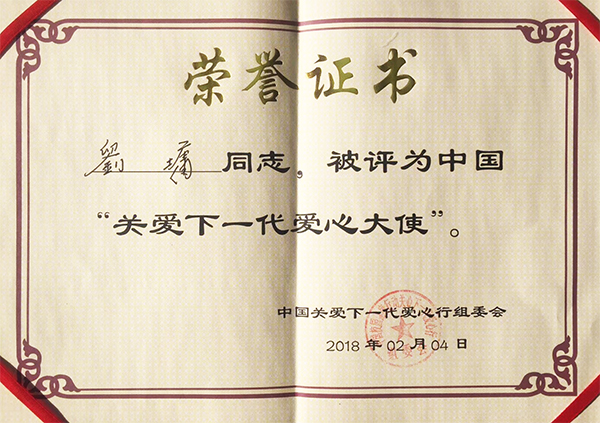 荣誉证书
劉 同志，被评为中国
“关爱下一代爱心大使”。
中国关爱下一代爱心行组委会
2018 年 02 月 04 日